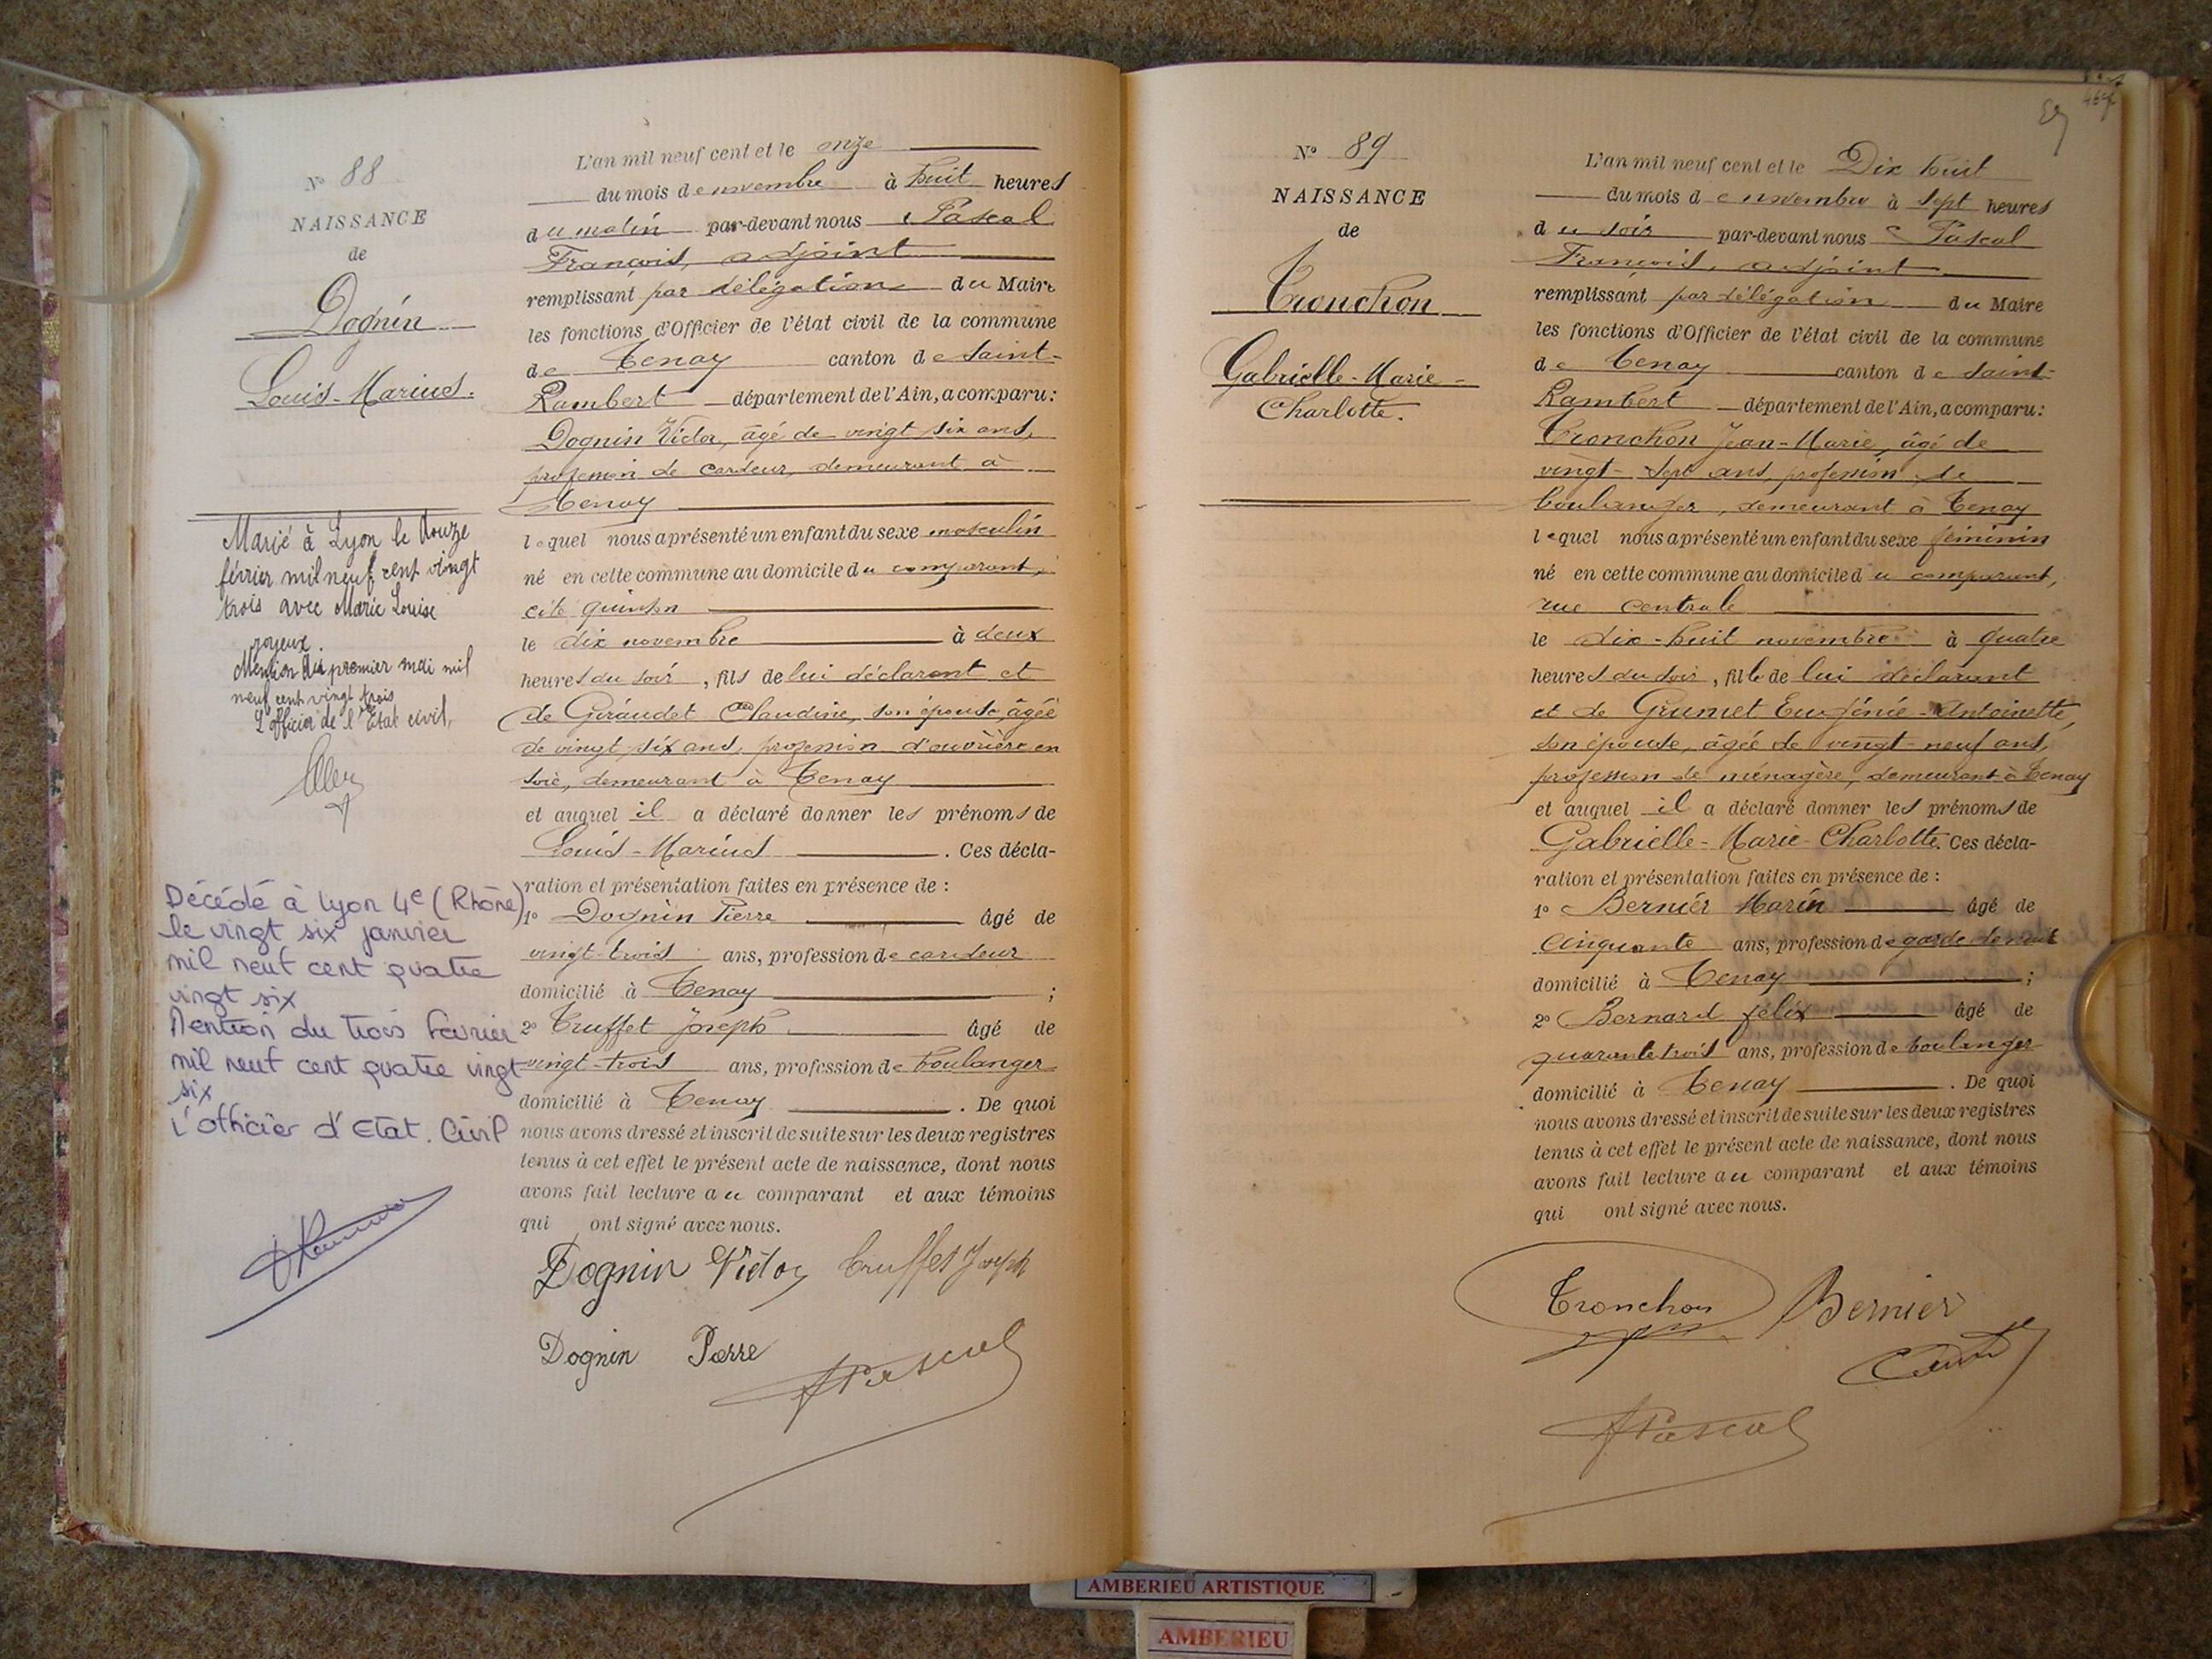 Nº 88
NAISSANCE
de
Dognin
Louis-Marius.
Marié à Lyon le douze
février mil neuf cent vingt
trois avec Marie Louise
joyeux.
Mention du premier mai mil
neuf cent vingt trois
L'officier de l'Etat civil,
Décédé à Lyon 4e (Rhône)
le vingt six janvier
mil neuf cent quatre
vingt six
Mention du trois Février
mil neuf cent quatre vingt
six
L'officier d'Etat. Civil
L'an mil neuf cent et le onze
du mois de novembre à huit heures
du matin par-devant nous Pascal
François, adjoint
remplissant par délégation du Maire
les fonctions d'Officier de l'état civil de la commune
de Tenay canton de Saint-
Rambert département de l'Ain, a comparu:
Dognin Victor, âgé de vingt six ans,
profession de cardeur, demeurant à
Tenay
lequel nous a présenté un enfant du sexe masculin
né en cette commune au domicile du comparant,
cité quinson
le dix novembre à deux
heures du soir, fils de lui déclarant et
de Giraudet Claudine, son épouse, âgée
de vingt six ans, profession d'ouvrière en
soie, demeurant à Tenay
et auquel il a déclaré donner les prénoms de
Louis-Marius. Ces décla-
ration et présentation faites en présence de :
1º Dognin Pierre âgé de
vingt-trois ans, profession de cardeur
domicilié à Tenay ;
2º Truffet Joseph âgé de
vingt-trois ans, profession de boulanger
domicilié à Tenay. De quoi
nous avons dressé et inscrit de suite sur les deux registres
tenus à cet effet le présent acte de naissance, dont nous
avons fait lecture au comparant et aux témoins
qui ont signé avec nous.
Dognin Victor Truffet Joseph
Dognin Pierre
Pascal
Nº 89
NAISSANCE
de
Tronchon
Gabrielle-Marie-
Charlotte.
L'an mil neuf cent et le Dix huit
du mois de novembre à sept heures
du soir par-devant nous Pascal
François, adjoint
remplissant par délégation du Maire
les fonctions d'Officier de l'état civil de la commune
de Tenay canton de Saint-
Rambert département de l'Ain, a comparu:
Tronchon Jean-Marie, âgé de
vingt-sept ans, profession de
boulanger, demeurant à Tenay
lequel nous a présenté un enfant du sexe féminin
né en cette commune au domicile du comparant,
rue centrale
le dix-huit novembre à quatre
heures du soir, fille de lui déclarant
et de Grumet Eugénie-Antoinette,
son épouse, âgée de vingt-neuf ans,
profession de ménagère, demeurant à Tenay
et auquel il a déclaré donner les prénoms de
Gabrielle-Marie-Charlotte. Ces décla-
ration et présentation faites en présence de :
1º Bernier Marin âgé de
cinquante ans, profession de garde de nuit
domicilié à Tenay ;
2º Bernard félix âgé de
quarante trois ans, profession de boulanger
domicilié à Tenay. De quoi
nous avons dressé et inscrit de suite sur les deux registres
tenus à cet effet le présent acte de naissance, dont nous
avons fait lecture au comparant et aux témoins
qui ont signé avec nous.
Tronchon Bernier
Pascal
AMBERIEU ARTISTIQUE
AMBERIEU